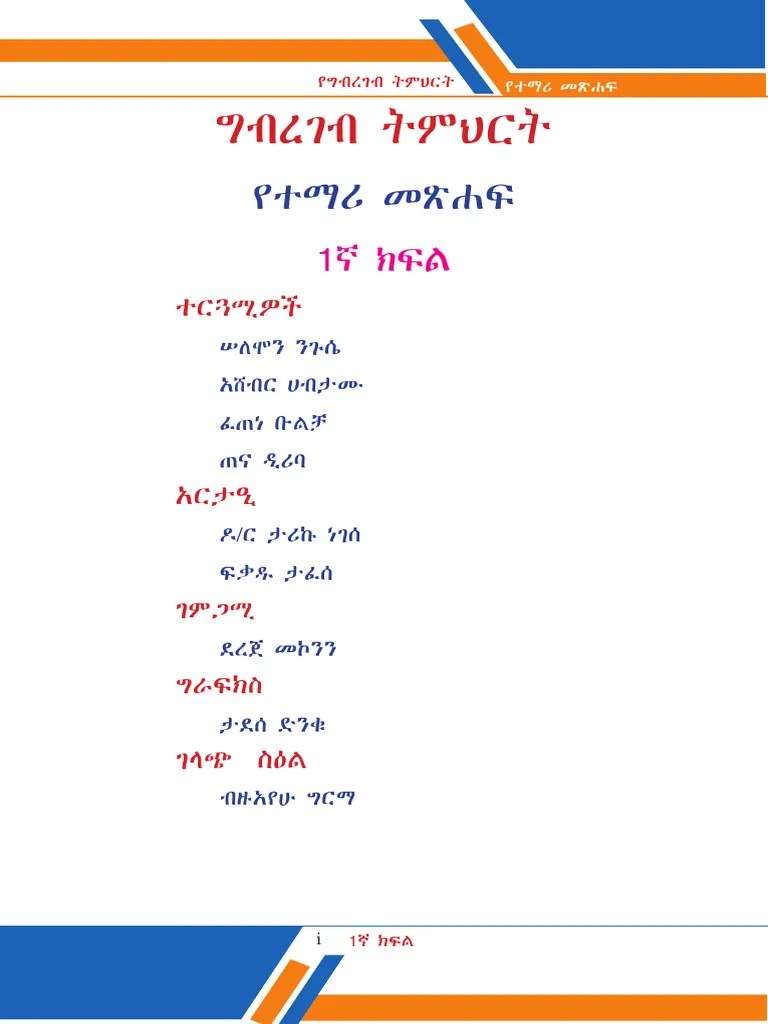 የግብረገብ ትምህርት
የተማሪ መጽሐፍ
ግብረገብ ትምህርት
የተማሪ መጽሐፍ
1ኛ ክፍል
ተርጓሚዎች
ሠለሞን ንጉሴ
አሸብር ሀብታሙ
ፈጠነ ቡልቻ
ጠና ዲሪባ
አርታዒ
ዶ/ር ታሪኩ ነገሰ
ፍቃዱ ታፈሰ
ገምጋሚ
ደረጀ መኮንን
ግራፍክስ
ታደሰ ድንቁ
ገላጭ ስዕል
ብዙአየሁ ግርማ
i 1ኛ ክፍል